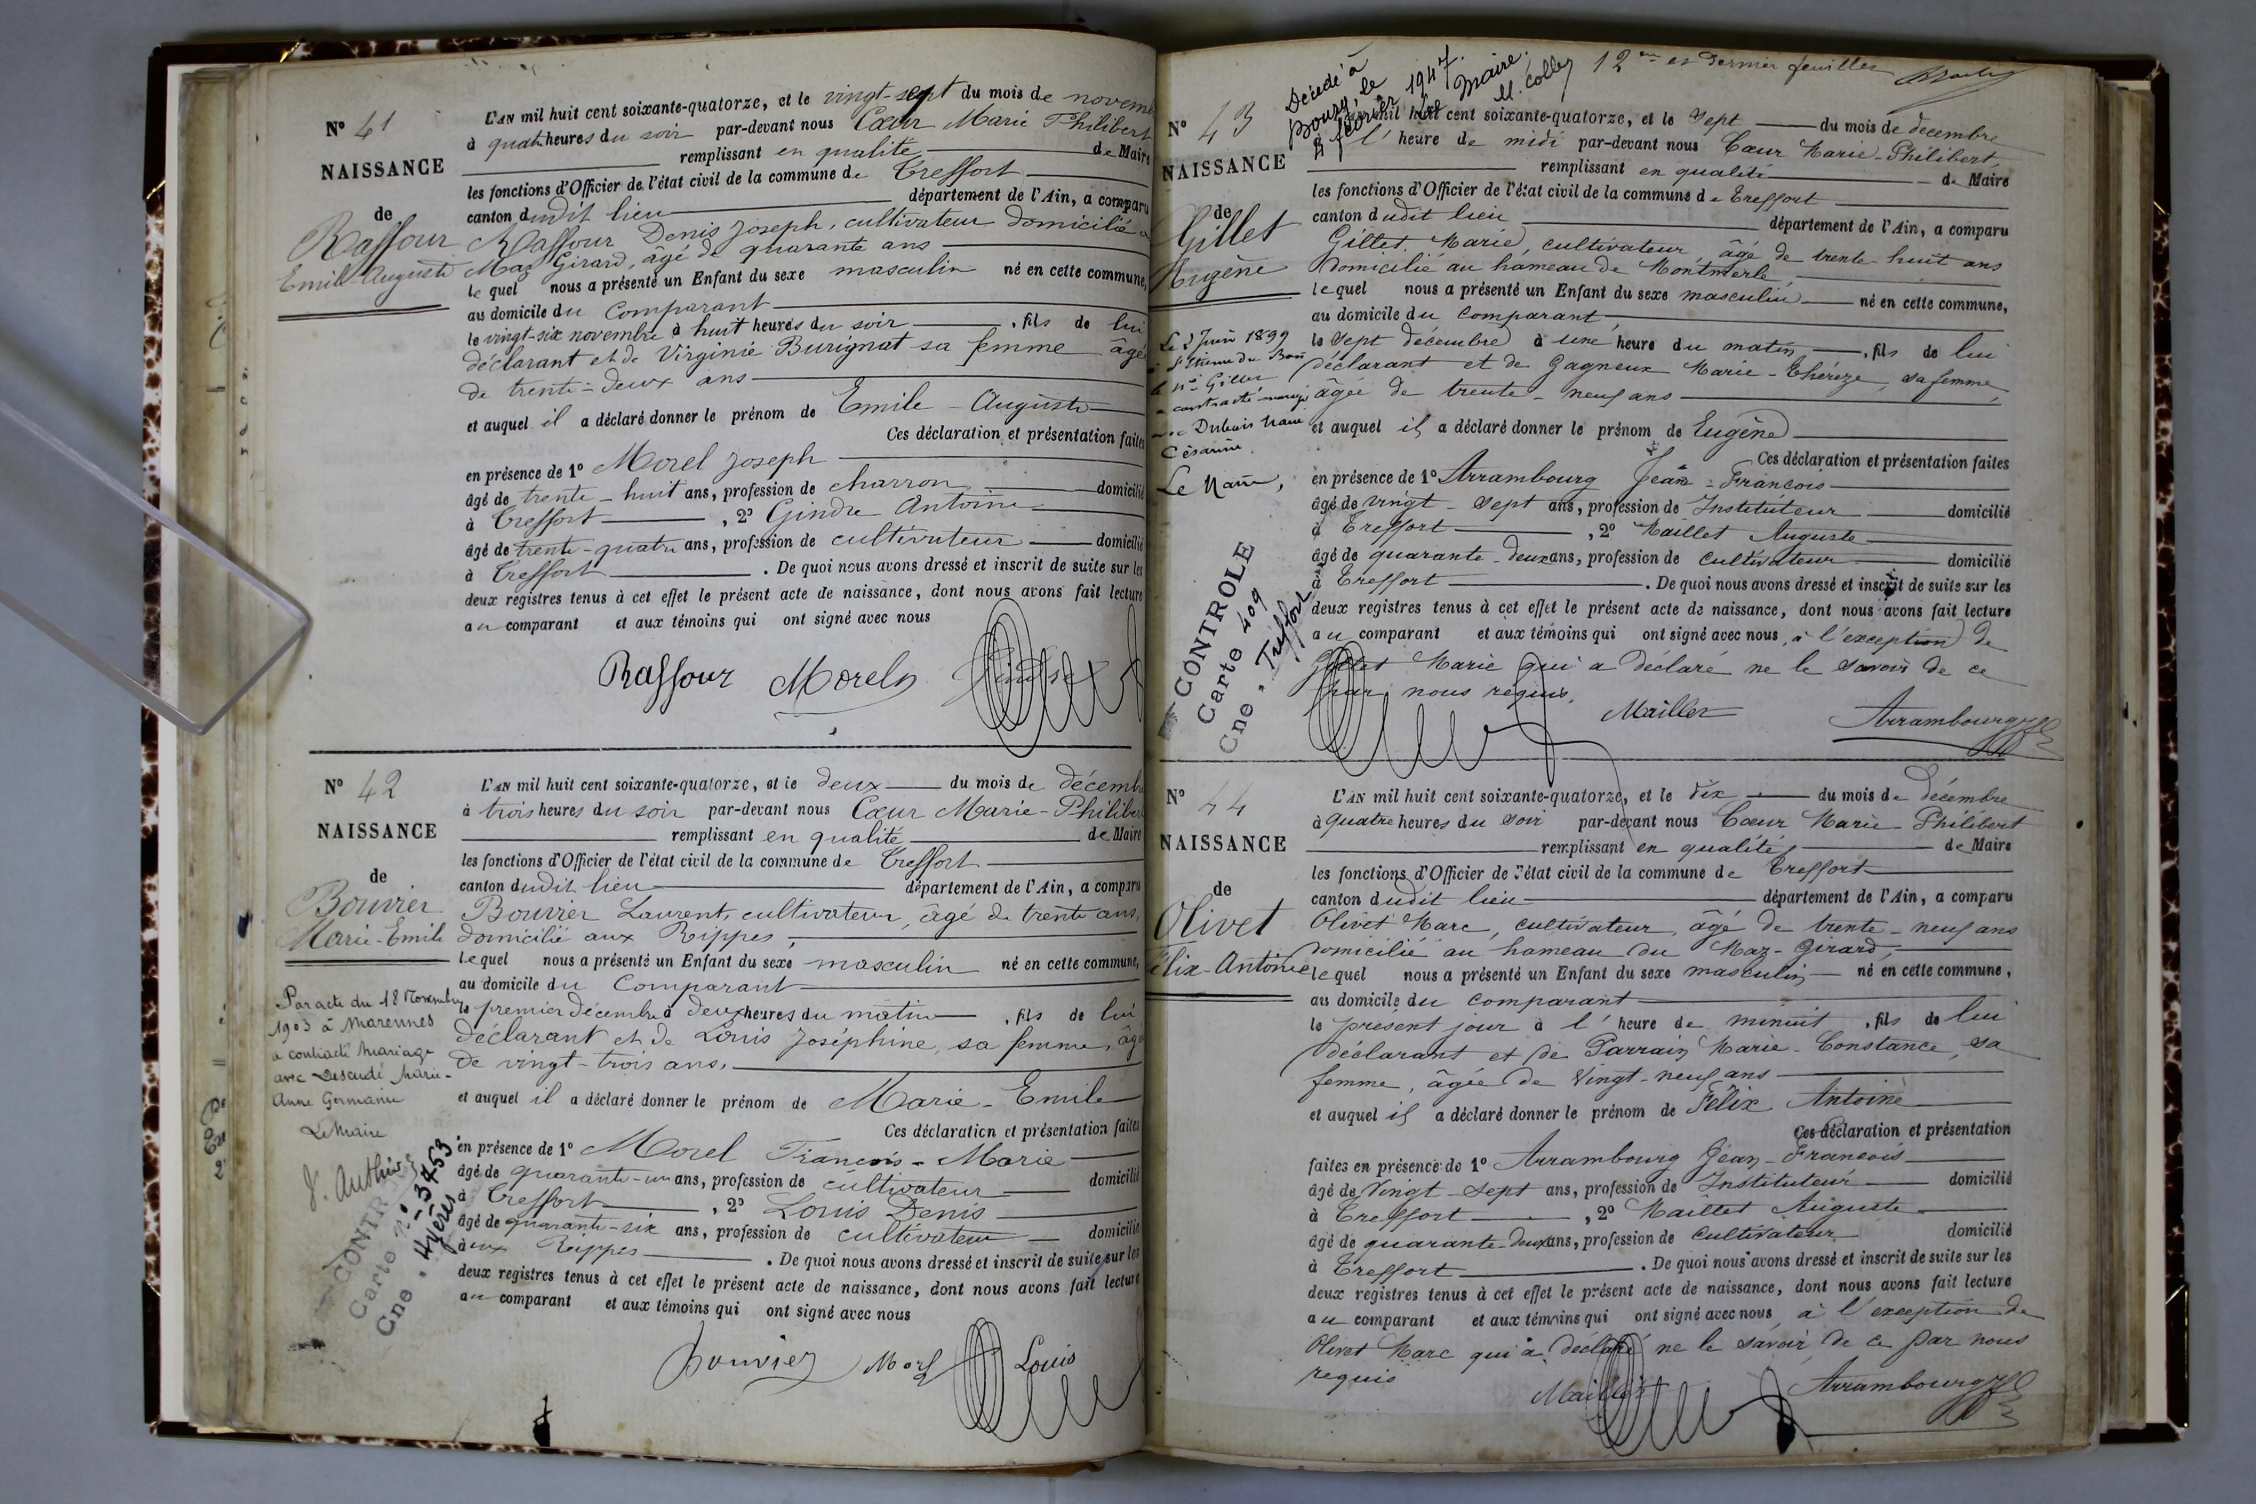 N° 41
NAISSANCE
de
Raffour
Emile-Auguste
L'AN mil huit cent soixante-quatorze, et le vingt-sept du mois de novem
à quatre heures du soir par-devant nous Cœur Marie Philibert
remplissant en qualité de Maire
les fonctions d'Officier de l'état civil de la commune de Treffort
canton dudit lieu département de l'Ain, a comparu
Raffour Denis Joseph, cultivateur domicilié a
Maz Girard, âgé de quarante ans
lequel nous a présenté un Enfant du sexe masculin né en cette commune,
au domicile du Comparant
le vingt-six novembre à huit heures du soir, fils de lui
déclarant et de Virginie Burignat sa femme âgée
de trente-deux ans
et auquel il a déclaré donner le prénom de Emile-Auguste
Ces déclaration et présentation faites
en présence de 1° Morel Joseph
âgé de trente-huit ans, profession de charron domicilié
à Treffort, 2° Gindre Antoine
âgé de trente-quatre ans, profession de cultivateur domicilié
à Treffort. De quoi nous avons dressé et inscrit de suite sur les
deux registres tenus à cet effet le présent acte de naissance, dont nous avons fait lecture
au comparant et aux témoins qui ont signé avec nous
Raffour Morel Gindre
N° 42
NAISSANCE
de
Bouvier
Marie-Emile
Par acte du 18 Novembre
1903 à Marennes
a contracté mariage
avec Descudé Marie-
Anne Germaine
Le Maire
CONTROLE
Carte n° 3453
Cne. Hyères
L'AN mil huit cent soixante-quatorze, et le deux du mois de décemb
à trois heures du soir par-devant nous Cœur Marie-Philiber
remplissant en qualité de Maire
les fonctions d'Officier de l'état civil de la commune de Treffort
canton dudit lieu département de l'Ain, a comparu
Bouvier Laurent, cultivateur, âgé de trente ans,
domicilié aux Rippes,
lequel nous a présenté un Enfant du sexe masculin né en cette commune,
au domicile du Comparant
le premier décembre à deux heures du matin, fils de lui
déclarant et de Louis Joséphine, sa femme, âgé
de vingt-trois ans,
et auquel il a déclaré donner le prénom de Marie-Emile
Ces déclaration et présentation faites
en présence de 1° Morel François-Marie
âgé de quarante-un ans, profession de cultivateur domicilié
à Treffort, 2° Louis Denis
âgé de quarante-six ans, profession de cultivateur domicilié
aux Rippes. De quoi nous avons dressé et inscrit de suite sur les
deux registres tenus à cet effet le présent acte de naissance, dont nous avons fait lecture
au comparant et aux témoins qui ont signé avec nous
Bouvier Morel Louis
12me et dernier feuillet
Décédé à
Bourg, le
février 1947.
Le Maire
N° 43
NAISSANCE
de
Gillet
Eugène
Le 3 Juin 1899
à St Etienne du Bois
le né Gillet
a contracté mariage
avec Dubois Marie
Césarine
Le Maire,
CONTROLE
Carte 409
Cne. Treffort
mil huit cent soixante-quatorze, et le sept du mois de décembre
à l'heure de midi par-devant nous Cœur Marie-Philibert,
remplissant en qualité de Maire
les fonctions d'Officier de l'état civil de la commune de Treffort
canton dudit lieu département de l'Ain, a comparu
Gillet, Marie, cultivateur, âgé de trente huit ans
domicilié au hameau de Montmerle
lequel nous a présenté un Enfant du sexe masculin né en cette commune,
au domicile du comparant,
le sept décembre à une heure du matin, fils de lui
déclarant et de Gagneux Marie-Thérèze, sa femme,
âgée de trente-neuf ans
et auquel il a déclaré donner le prénom de Eugène
Ces déclaration et présentation faites
en présence de 1° Arrambourg Jean-François
âgé de vingt-sept ans, profession de Instituteur domicilié
à Treffort, 2° Maillet Auguste
âgé de quarante-deux ans, profession de cultivateur domicilié
à Treffort. De quoi nous avons dressé et inscrit de suite sur les
deux registres tenus à cet effet le présent acte de naissance, dont nous avons fait lecture
au comparant et aux témoins qui ont signé avec nous, à l'exception de
Gillet Marie qui a déclaré ne le savoir de ce
par nous requis.
Maillet Arrambourg
N° 44
NAISSANCE
de
Olivet
Félix-Antoine
L'AN mil huit cent soixante-quatorze, et le dix du mois de décembre
à quatre heures du soir par-devant nous Cœur Marie-Philibert
remplissant en qualité de Maire
les fonctions d'Officier de l'état civil de la commune de Treffort
canton dudit lieu département de l'Ain, a comparu
Olivet Marc, cultivateur, âgé de trente-neuf ans
domicilié au hameau du Maz-Girard,
lequel nous a présenté un Enfant du sexe masculin né en cette commune,
au domicile du comparant
le présent jour à l'heure de minuit, fils de lui
déclarant et de Parrain Marie-Constance, sa
femme, âgée de vingt-neuf ans
et auquel il a déclaré donner le prénom de Félix Antoine
Ces déclaration et présentation
faites en présence de 1° Arrambourg Jean-François
âgé de vingt-sept ans, profession de Instituteur domicilié
à Treffort, 2° Maillet Auguste
âgé de quarante-deux ans, profession de cultivateur domicilié
à Treffort. De quoi nous avons dressé et inscrit de suite sur les
deux registres tenus à cet effet le présent acte de naissance, dont nous avons fait lecture
au comparant et aux témoins qui ont signé avec nous à l'exception de
Olivet Marc qui a déclaré ne le savoir de ce par nous
requis
Maillet Arrambourg